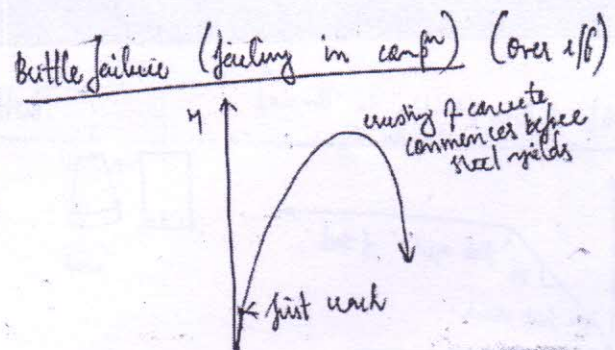 Brittle failure (failing in compⁿ) (over r/f)
M
crushing of concrete
commences before
steel yields
first crack